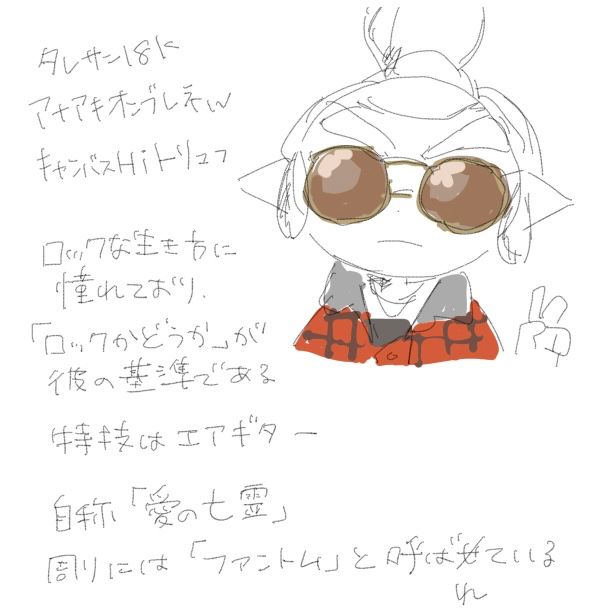 タレサン18K
アナアキオンブレネW
キャンバスHiトリュフ
ロックな生き方に
憧れており、
「ロックかどうか」が
彼の基準である
特技はエアギター
自称「愛の亡霊」
周りには「ファントム」と呼ばせている
れ